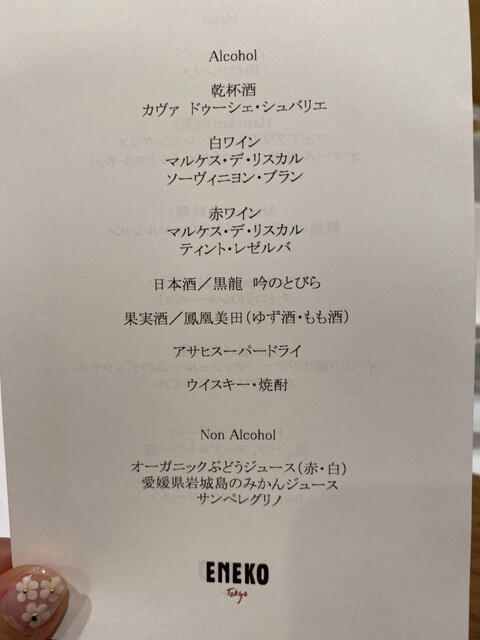 Alcohol
乾杯酒
カヴァ ドゥーシェ・シュバリエ
白ワイン
マルケス・デ・リスカル
ソーヴィニヨン・ブラン
赤ワイン
マルケス・デ・リスカル
ティント・レゼルバ
日本酒／黒龍 吟のとびら
果実酒／鳳凰美田(ゆず酒・もも酒)
アサヒスーパードライ
ウイスキー・焼酎
Non Alcohol
オーガニックぶどうジュース(赤・白)
愛媛県岩城島のみかんジュース
サンペレグリノ
ENEKO
Tokyo